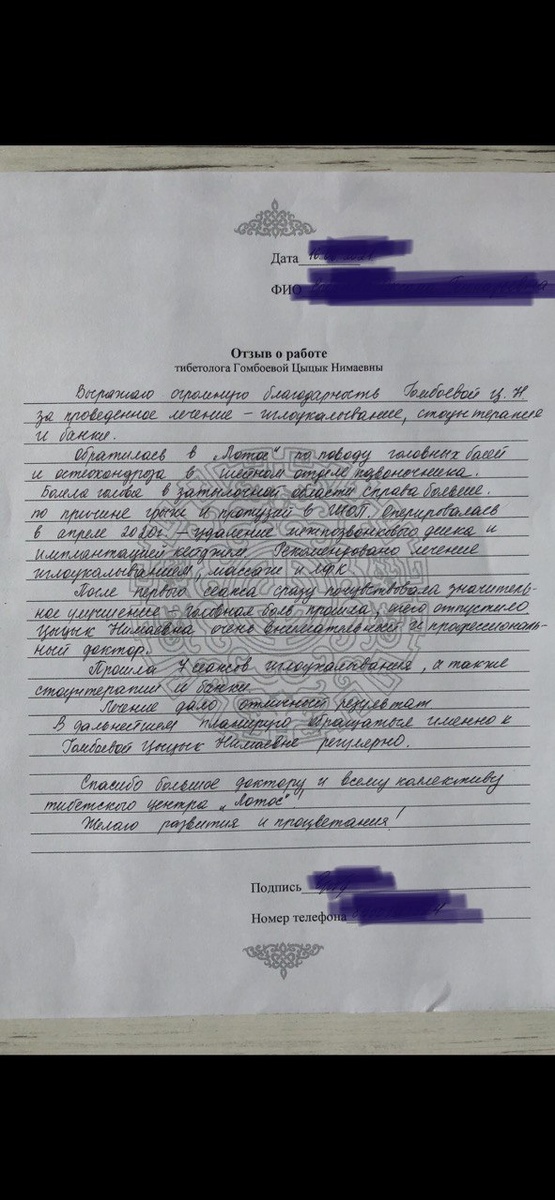 Дата
ФИО
Отзыв о работе
тибетолога Гомбоевой Цыцык Нимаевны
Выражаю огромную благодарность Гомбоевой Ц. Н
за проведенное лечение – иглоукалывание, стоунтерапия
и банки.
Обратилась в „Лотос" по поводу головных болей
и остеохондроза в шейном отделе позвоночника.
Болела голова в затылочной области справа больше.
по причине грыж и протрузий в ШОП. Оперировалась
в апреле 2020г. – удаление межпозвонкового диска и
имплантацией кейджем. Рекомендовано лечение
иглоукалыванием, массаж и ЛФК
После первого сеанса сразу почувствовала значитель-
ное улучшение – головная боль прошла, шею отпустило
Цыцык Нимаевна очень внимательный и профессиональ-
ный доктор.
Прошла 7 сеансов иглоукалывания, а также
стоунтерапии и банки.
Лечение дало отличный результат
В дальнейшем планирую обращаться именно к
Гомбоевой Цыцык Нимаевне регулярно.
Спасибо большое доктору и всему коллективу
тибетского центра „Лотос"
Желаю развития и процветания!
Подпись
Номер телефона